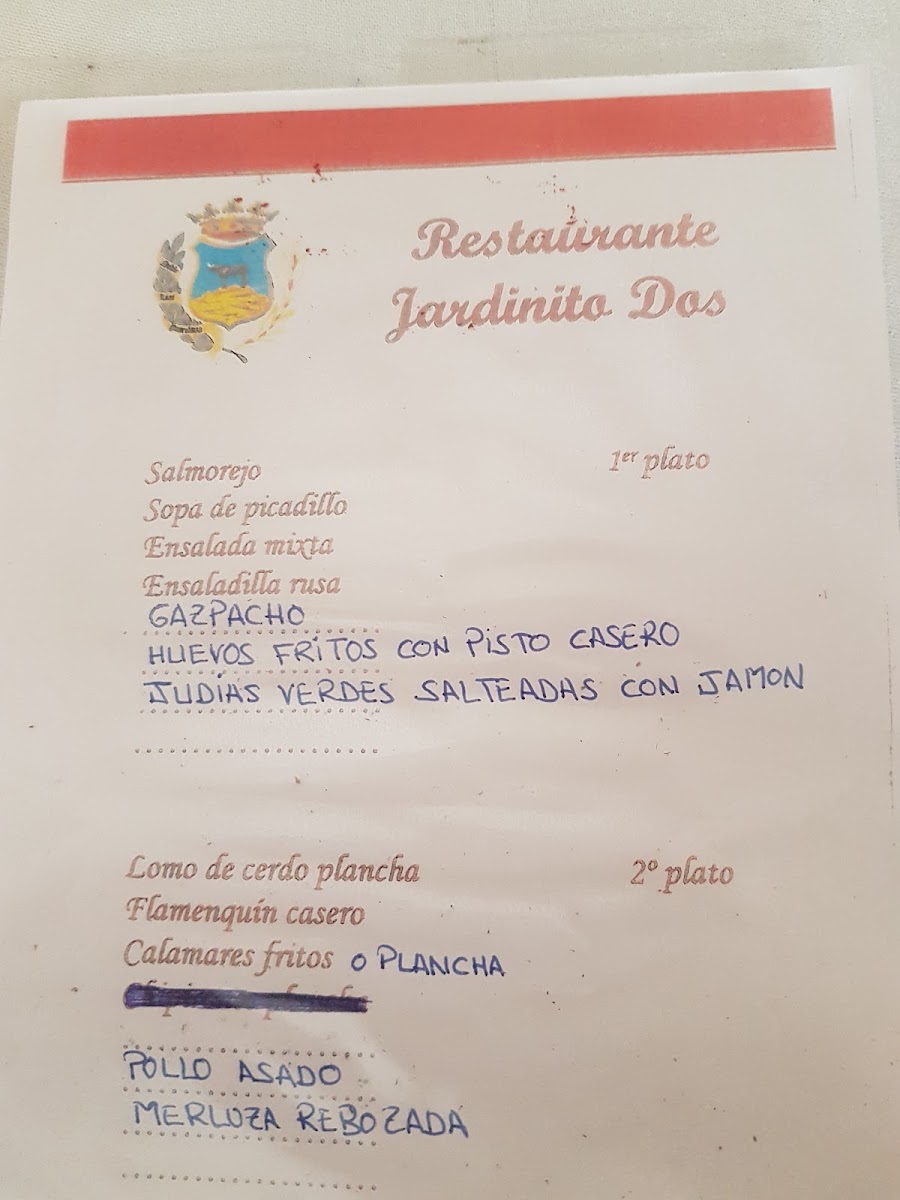 Restaurante
Jardinito Dos
1er plato
Salmorejo
Sopa de picadillo
Ensalada mixta
Ensaladilla rusa
GAZPACHO
HUEVOS FRITOS CON PISTO CASERO
JUDIAS VERDES SALTEADAS CON JAMON
2º plato
Lomo de cerdo plancha
Flamenquín casero
Calamares fritos O PLANCHA
POLLO ASADO
MERLUZA REBOZADA